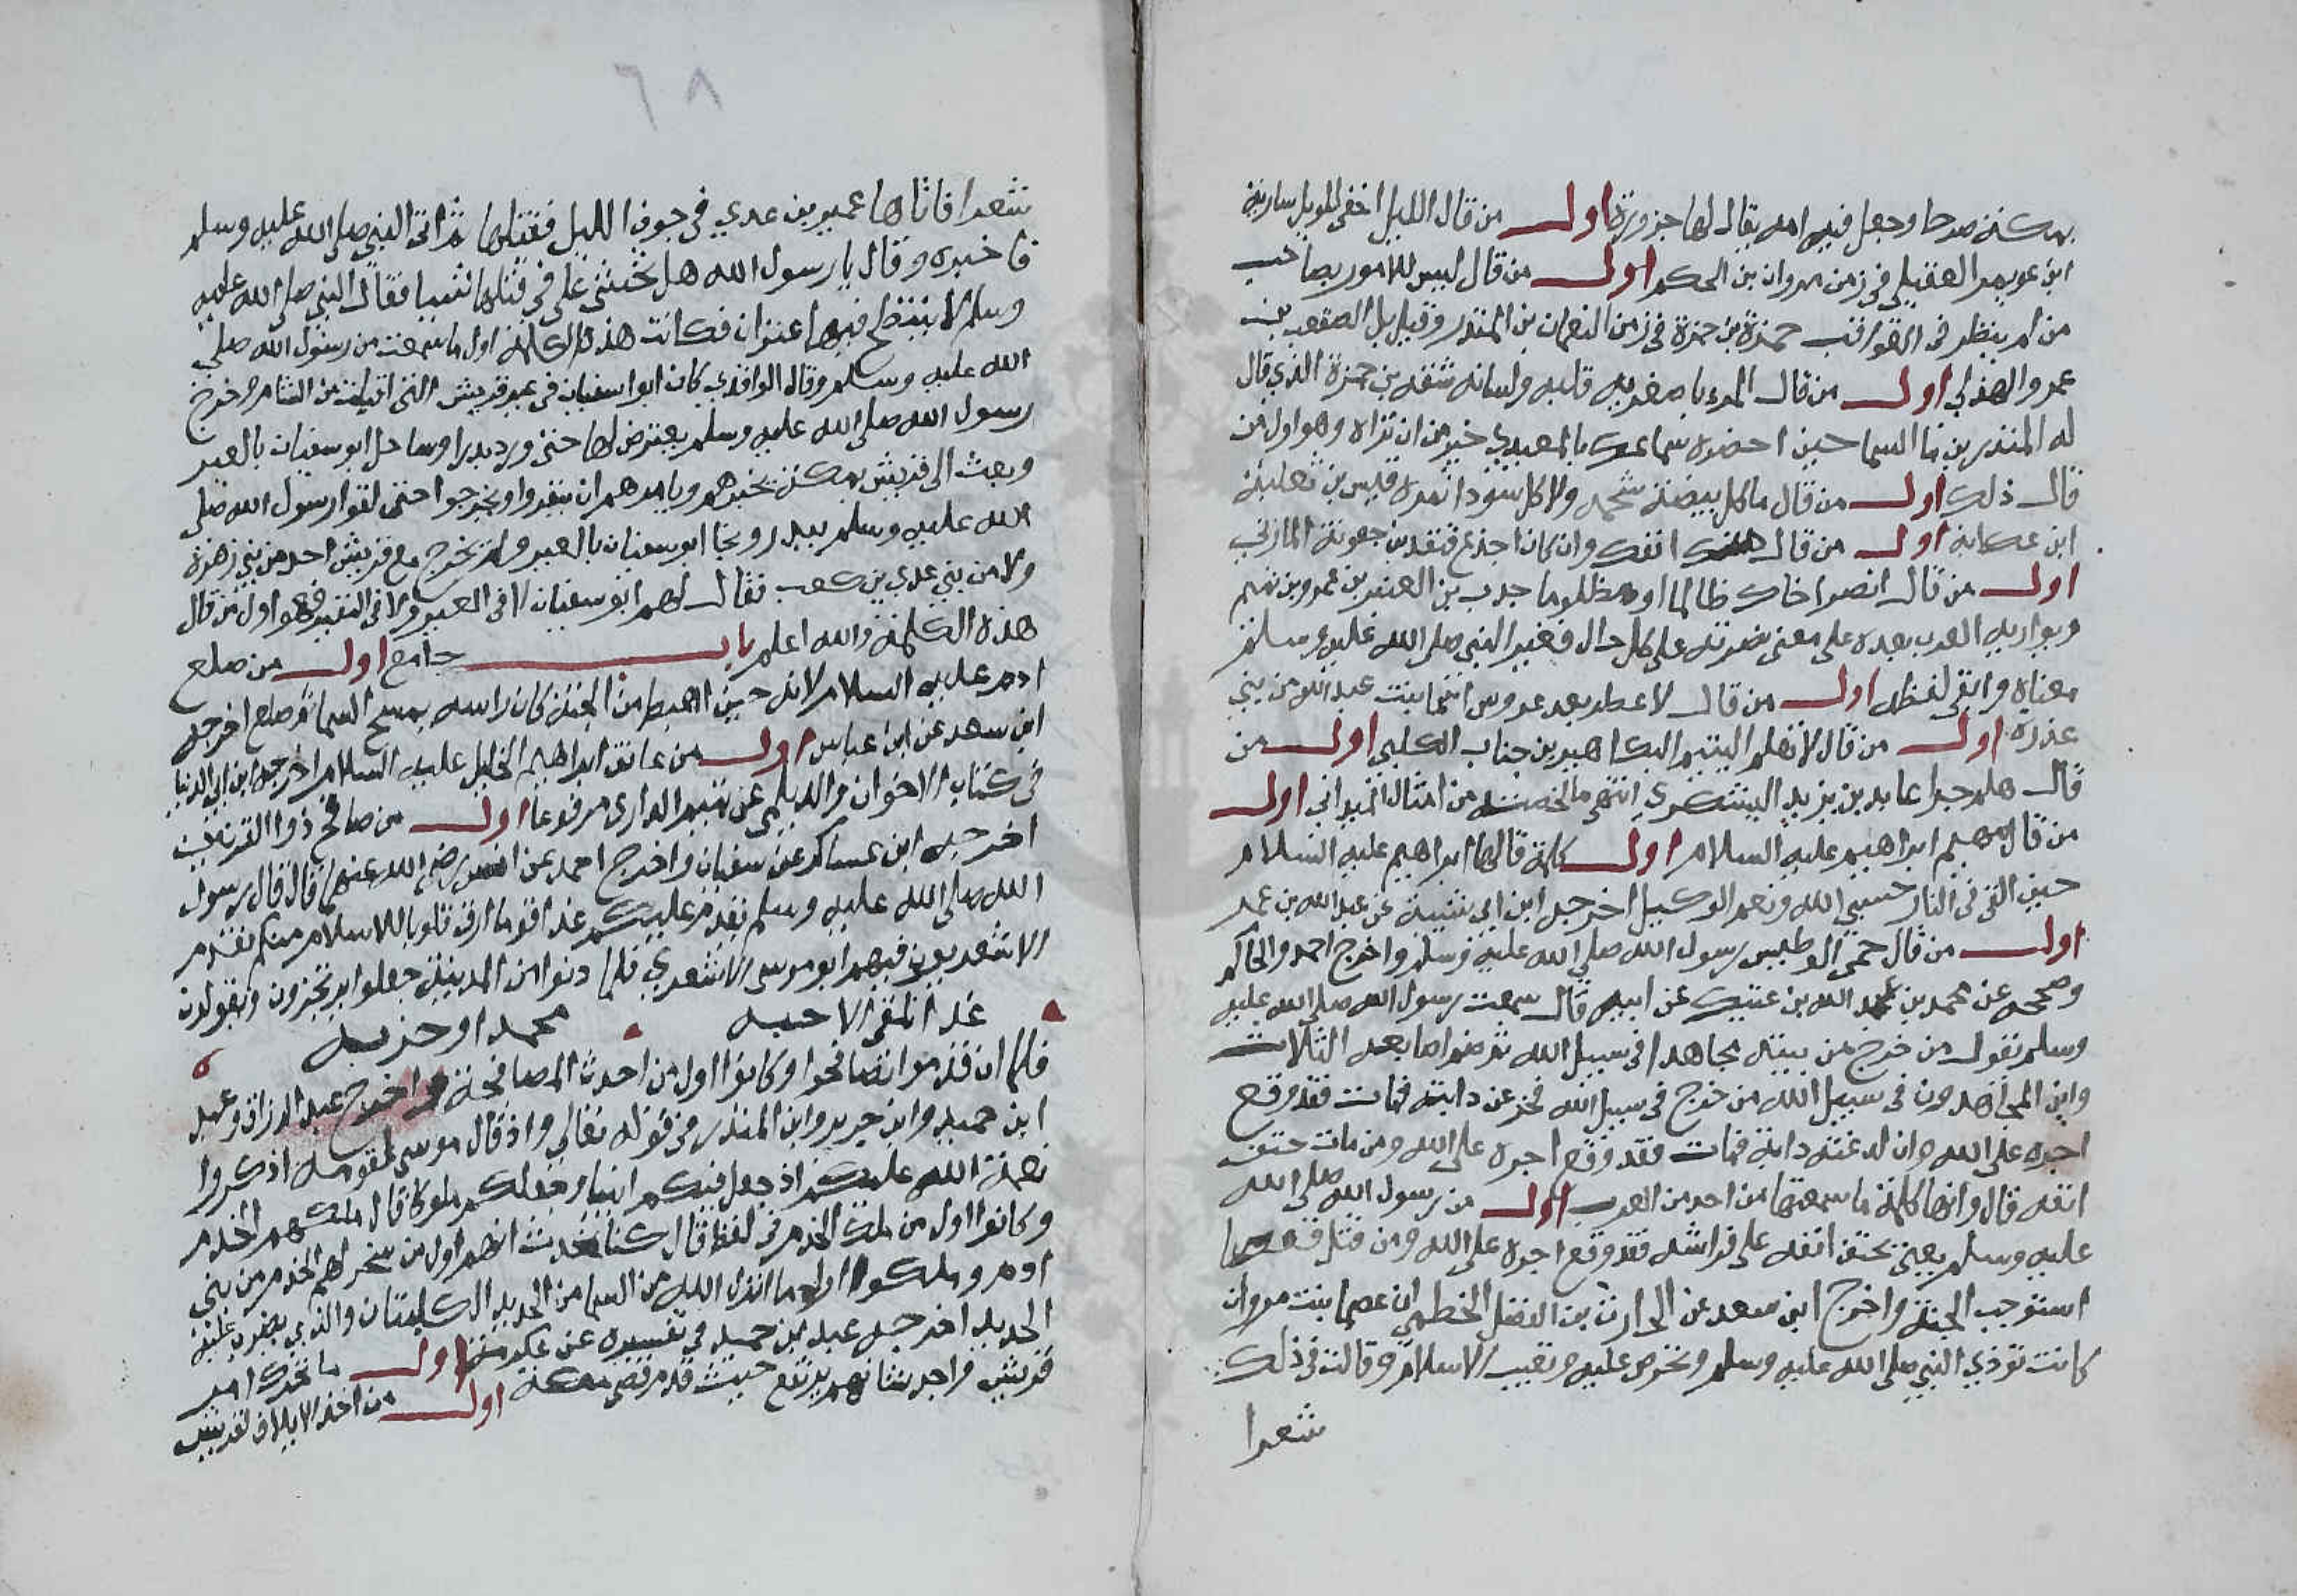 بمكة صرحا وجعل فيه امة يقال لها جزورة اول من قال الليل اخفى للويل سارية
ابن عويمر العقيلي في زمن مروان بن الحكم اول من قال ليس للامور بصاحب
من لم ينظر في العواقب حمزة بن حمزة في زمن النعمان بن المنذر وقيل بل الصقعب بن
عمرو الهذلي اول من قال المرء باصغريه قلبه ولسانه شقة بن حمزة الذي قال
له المنذر بن ما السما حين احضره سماعك بالمعيدي خير من ان تراه وهو اول من
قال ذلك اول من قال ما كل بيضة شحمة ولا كل سودا تمرة قيس بن ثعلبة
ابن عكابة اول من قال انفك وان كان اجذع قنفد بن جعونة المازني
اول من قال انصر اخاك ظالما او مظلوما جدب بن العنبر بن عمرو بن تميم
ويواريه العرب بعده على معنى نصرته على كل حال فغير النبي صلى الله عليه وسلم
معناه وابقى لفظه اول من قال لا عطر بعد عروس اسما بنت عبد الله من بني
عذرة اول من قال لا تعلم اليتيم البكا زهير بن جناب الكلبي اول من
قال هلم جرا عابد بن يزيد اليشكري انتهى ما لخصته من امثال الميداني اول
من قال مهيم ابراهيم عليه السلام اول كلمة قالها ابراهيم عليه السلام
حين القي في النار حسبي الله ونعم الوكيل اخرجه ابن ابي شيبة عن عبد الله بن عمر
اول من قال حمي الوطيس رسول الله صلى الله عليه وسلم واخرج احمد والحاكم
وصححه عن محمد بن عبد الله بن عتيك عن ابيه قال سمعت رسول الله صلى الله عليه
وسلم يقول من خرج من بيته مجاهدا في سبيل الله ثم ضم اصابعه الثلاث
واين المجاهدون في سبيل الله من خرج في سبيل الله فخر عن دابته فمات فقد وقع
اجره على الله وان لدغته دابة فمات فقد وقع اجره على الله ومن مات حتف
انفه قال وانها كلمة ما سمعتها من احد من العرب اول من رسول الله صلى الله
عليه وسلم يعني بحتف انفه على فراشه فقد وقع اجره على الله ومن قتل قعصا
استوجب الجنة واخرج ابن سعد عن الحارث بن الفضل الخطمي ان عصما بنت مروان
كانت تؤذي النبي صلى الله عليه وسلم وتحرض عليه وتعيب الاسلام وقالت في ذلك
شعرا
٦٨
شعرا فاتاها عمير بن عدي في جوف الليل فقتلها ثم اتى النبي صلى الله عليه وسلم
فاخبره وقال يا رسول الله هل تخشى علي في قتلها شيا فقال النبي صلى الله عليه
وسلم لا ينتطح فيها عنزان فكانت هذه الكلمة اول ما سمعت من رسول الله صلى
الله عليه وسلم وقال الواقدي كان ابو سفيان في عير قريش التي اقبلت من الشام وخرج
رسول الله صلى الله عليه وسلم يعترض لها حتى ورد بدرا وساحل ابو سفيان بالعير
وبعث الى قريش بمكة يخبرهم ويامرهم ان ينفروا ويخرجوا حتى لقوا رسول الله صلى
الله عليه وسلم ببدر ونجا ابو سفيان بالعير ولم يخرج مع قريش احد من بني زهرة
ولا من بني عدي بن كعب فقال لهم ابو سفيان لا في العير ولا في النفير فهو اول من قال
هذه الكلمة والله اعلم باب جامع اول من صلع
ادم عليه السلام لانه حين اهبط من الجنة كان راسه يمسح السما فصلع اخرجه
ابن سعد عن ابن عباس اول من عانق ابراهيم الخليل عليه السلام اخرجه ابن ابي الدنيا
في كتاب الاخوان والديلمي عن تميم الداري مرفوعا اول من صافح ذو القرنين
اخرجه ابن عساكر عن سفيان واخرج احمد عن انس رضي الله عنهما قال قال رسول
الله صلى الله عليه وسلم يقدم عليكم غدا اقوما ارق قلوبا للاسلام منكم فقدم
الاشعريون فيهم ابو موسى الاشعري فلما دنوا من المدينة جعلوا يرتجزون ويقولون
غدا نلقى الاحبه محمدا وحزبه
فلما ان قدموا تصافحوا وكانوا اول من احدث المصافحة واخرج عبد الرزاق وعبد
ابن حميد وابن جرير وابن المنذر في قوله تعالى واذ قال موسى لقومه اذكروا
نعمة الله عليكم اذ جعل فيكم انبيا وجعلكم ملوكا قال ملكهم الخدم
وكانوا اول من ملك الخدم في لفظ قال كنا نحدث انهم اول من سخر لهم الخدم من بني
ادم وملكوا اول ما انزل الله من السما من الحديد الكلبتان والذي يضرب عليه
الحديد اخرجه عبد بن حميد في تفسيره عن عكرمة اول ما تحرك امر
قريش واجد شانهم يرتفع حيث قدم قصي مكة اول من اخذ الايلاف لقريش